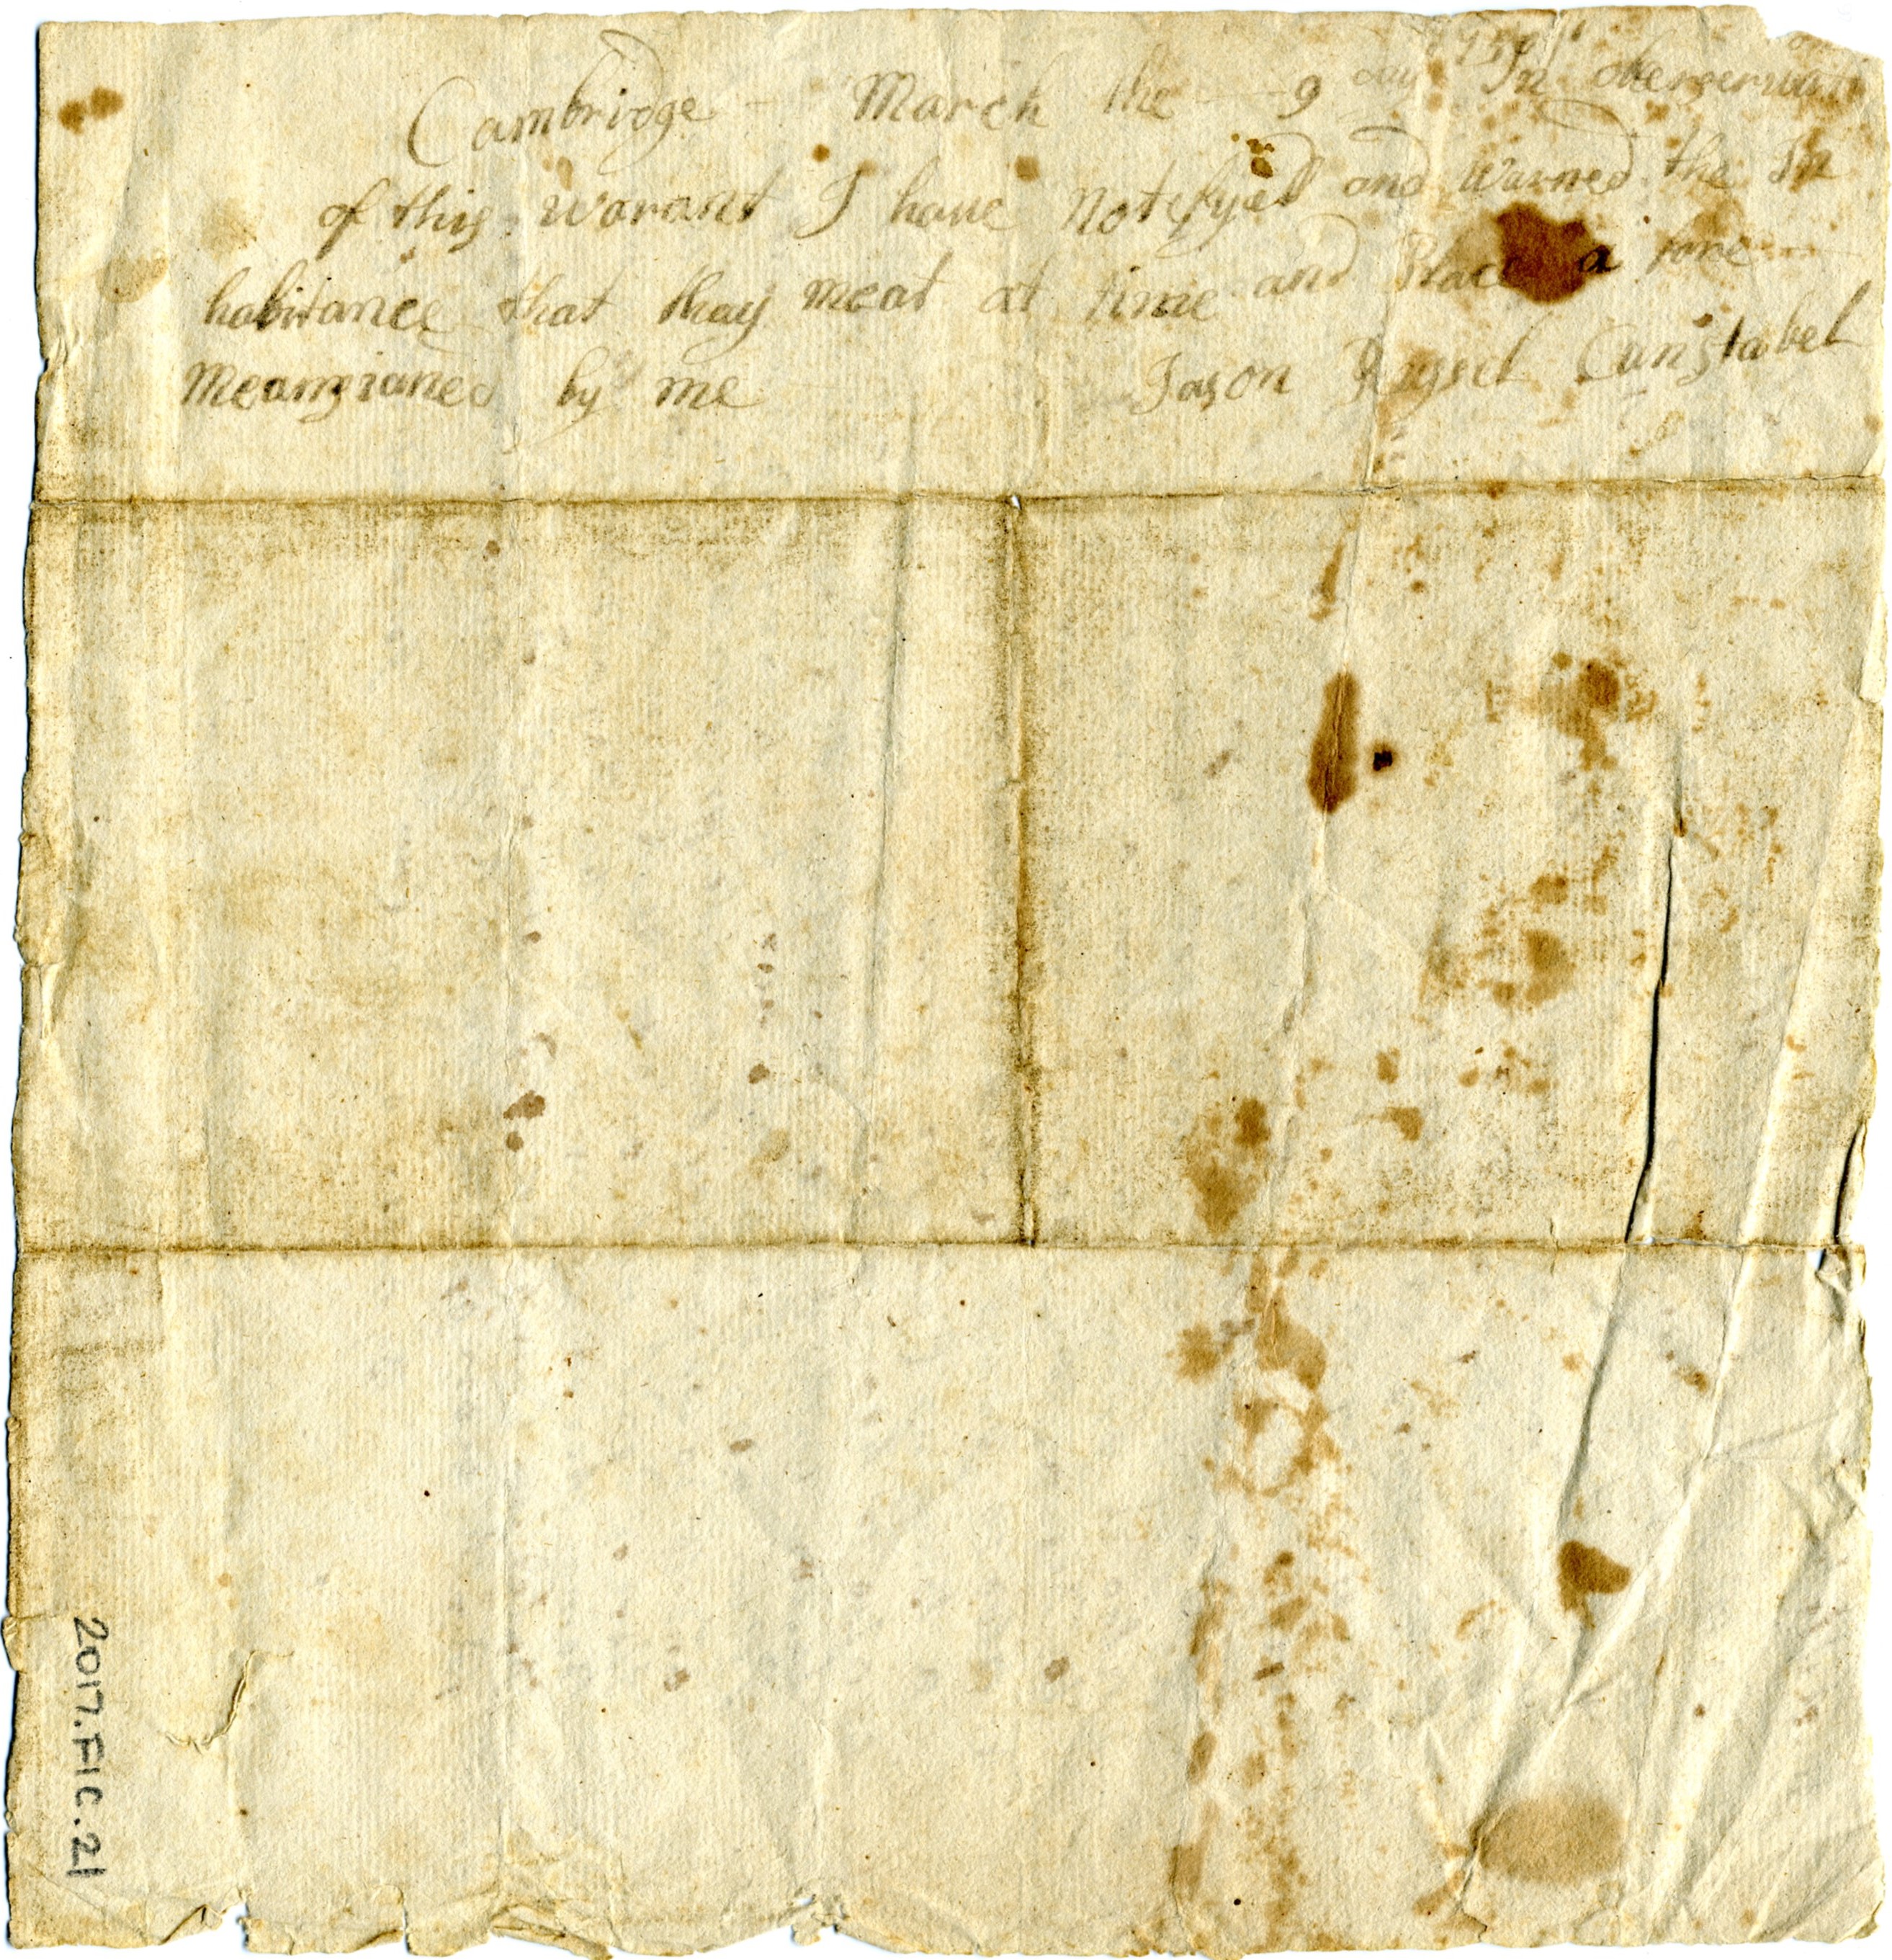 Cambridge - March the - 9 day 175 In oberservat on
of this warant I have notefyed and warned the In
habitance that thay meat at time and Place a fore
meanzianed by me Jason Rusel Cunstabel
2017.F1C.21